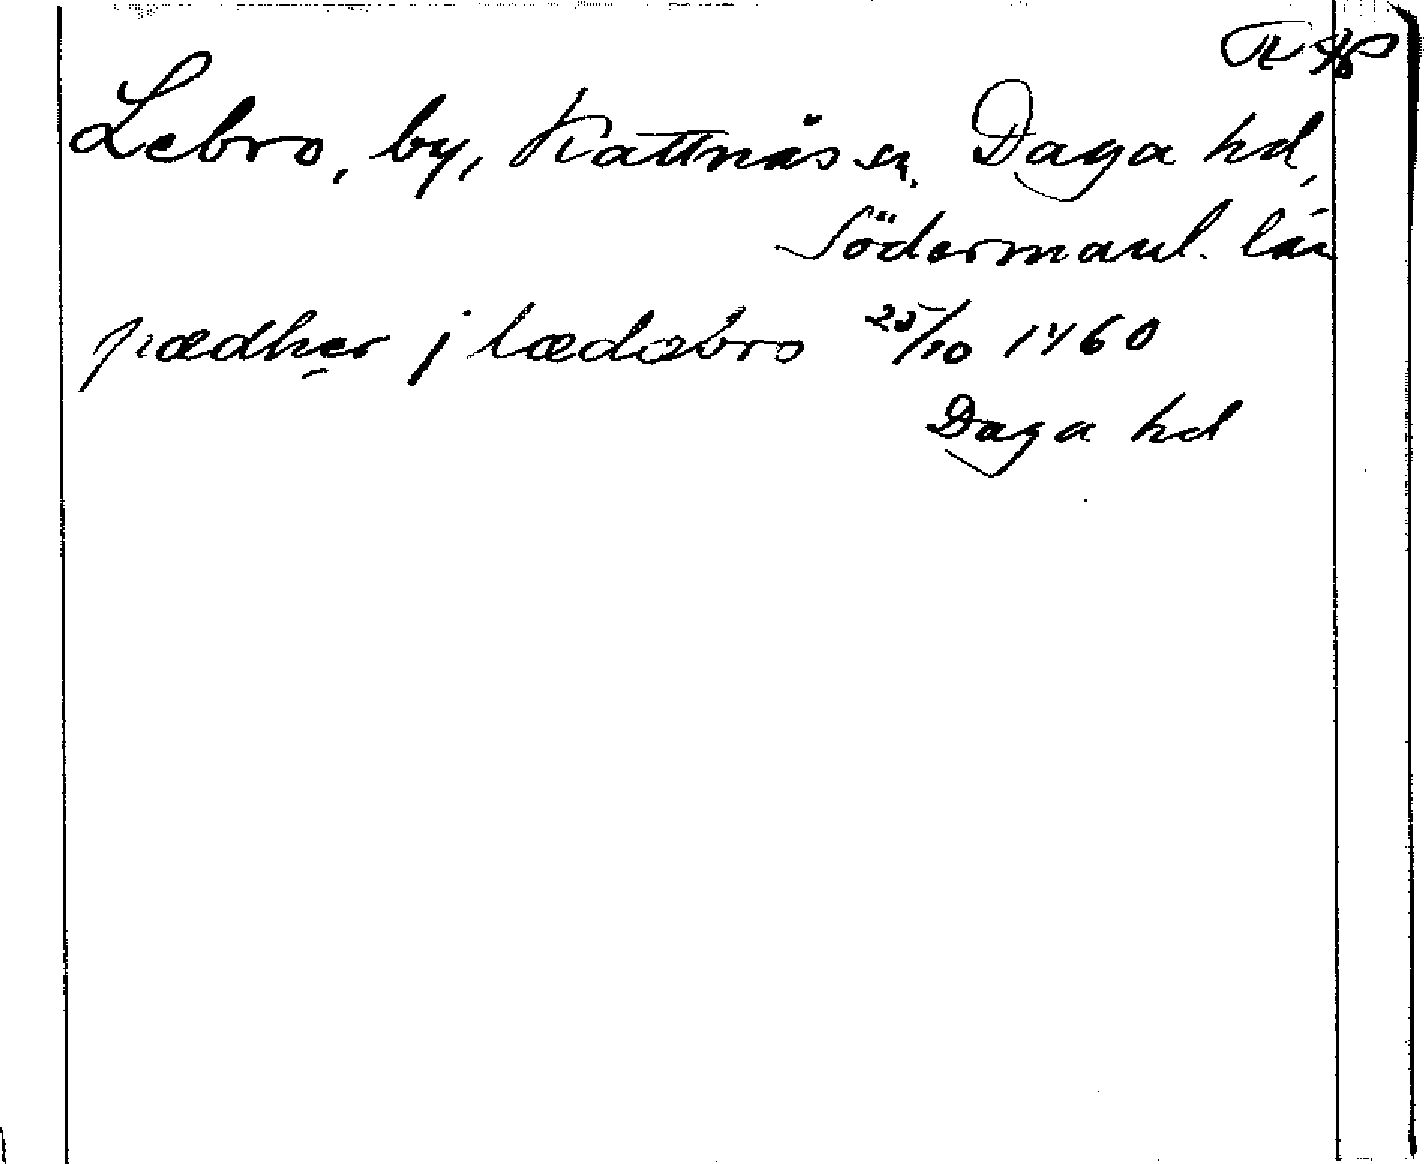 Lebro, by, Kattnäs sn, Daga hd,
Södermanl. län
pædher j lædabro 25/10 1460
Daga hd